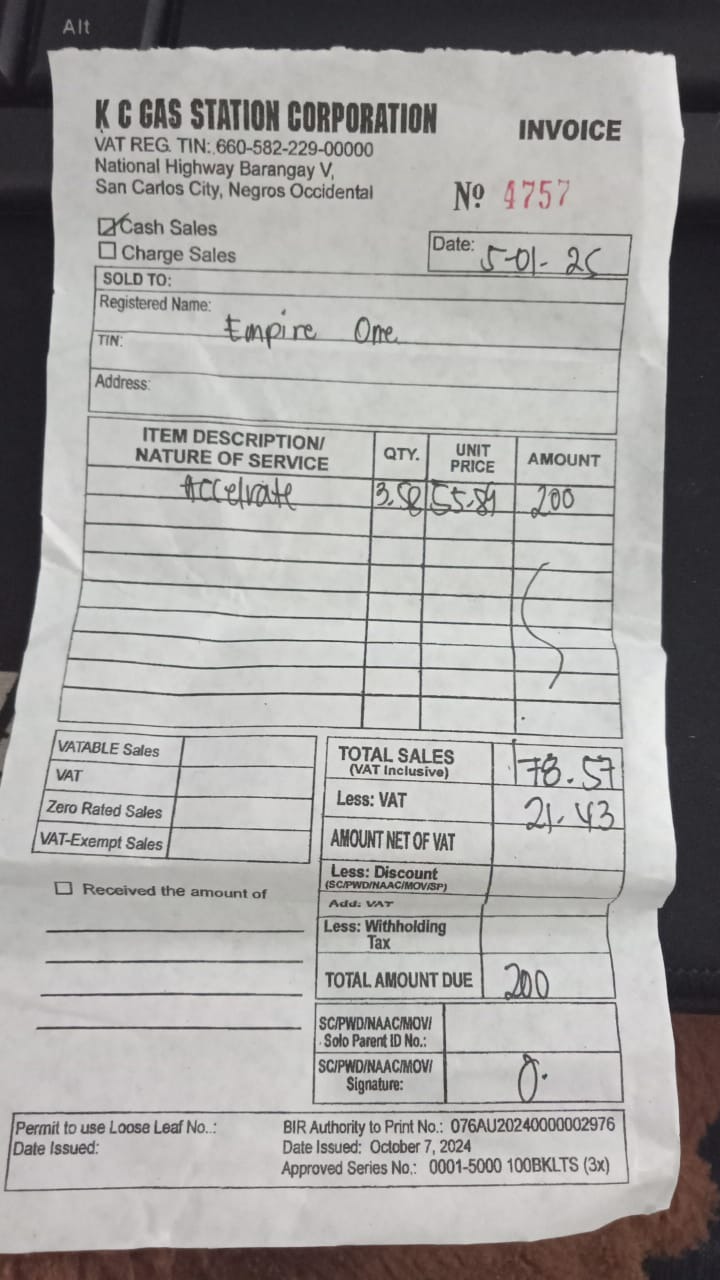 Alt
K C GAS STATION CORPORATION
INVOICE
VAT REG. TIN: 660-582-229-00000
National Highway Barangay V,
San Carlos City, Negros Occidental
Nº 4757
Cash Sales
Charge Sales
Date: 5-01-25
SOLD TO:
Registered Name: Empire One
TIN:
Address:
ITEM DESCRIPTION/ NATURE OF SERVICE QTY. UNIT PRICE AMOUNT
Accelrate 3.58 55.89 200
VATABLE Sales
VAT
Zero Rated Sales
VAT-Exempt Sales
Received the amount of
TOTAL SALES 178.57
(VAT Inclusive)
Less: VAT 21.43
AMOUNT NET OF VAT
Less: Discount
(SC/PWD/NAAC/MOV/SP)
Add: VAT
Less: Withholding
Tax
TOTAL AMOUNT DUE 200
SC/PWD/NAAC/MOV/
Solo Parent ID No.:
SC/PWD/NAAC/MOV/
Signature:
Permit to use Loose Leaf No..:
Date Issued:
BIR Authority to Print No.: 076AU20240000002976
Date Issued: October 7, 2024
Approved Series No.: 0001-5000 100BKLTS (3x)